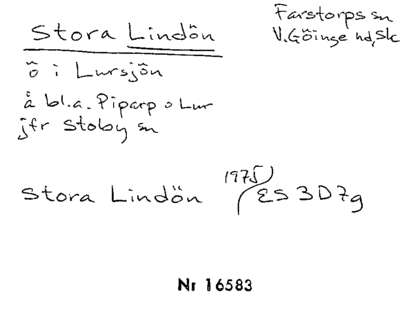 Stora Lindön
Farstorps sn
V. Göinge hd, Sk
ö i Lursjön
å bl.a. Piparp o Lur
jfr Stoby sn
Stora Lindön 1975 ES 3D7g
Nr 16583